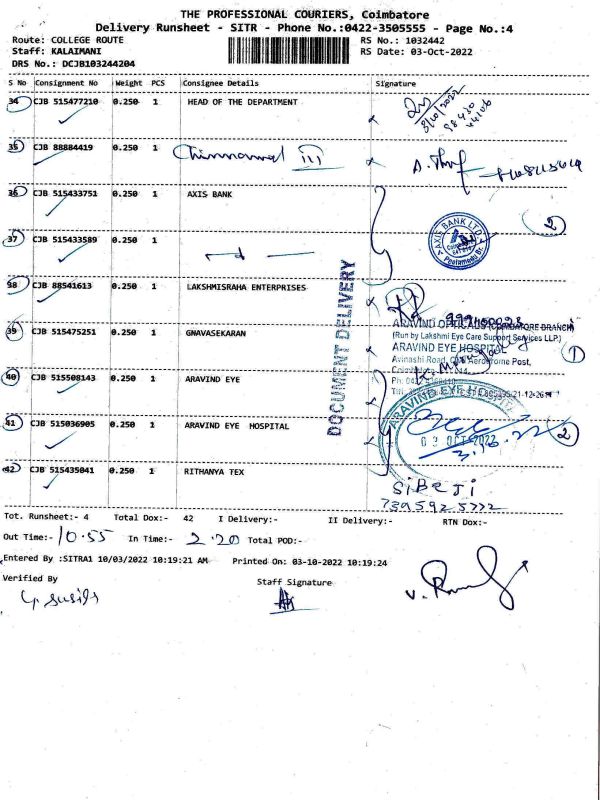 THE PROFESSIONAL COURIERS, Coimbatore
Delivery Runsheet - SITR - Phone No.:0422-3505555 - Page No.:4
Route: COLLEGE ROUTE RS No.: 1032442
Staff: KALAIMANI RS Date: 03-Oct-2022
DRS No.: DCJB103244204
S No Consignment No Weight PCS Consignee Details Signature
34 CJB 515477210 0.250 1 HEAD OF THE DEPARTMENT
3/10/2022
98430
44106
35 CJB 88884419 0.250 1
36 CJB 515433751 0.250 1 AXIS BANK
AXIS BANK LTD
2
37 CJB 515433589 0.250 1
DOCUMENT DELIVERY
38 CJB 88541613 0.250 1 LAKSHMISRAHA ENTERPRISES
ARAVIND OPTICALS (COIMBATORE BRANCH)
(Run by Lakshmi Eye Care Support Services LLP.)
39 CJB 515475251 0.250 1 GNAVASEKARAN
ARAVIND EYE HOSPITAL
Avinashi Road, Aerodrome Post,
1
40 CJB 515508143 0.250 1 ARAVIND EYE
ARAVIND EYE HOSPITAL
41 CJB 515036905 0.250 1 ARAVIND EYE HOSPITAL
03 OCT 2022
3.10.22
2
42 CJB 515435041 0.250 1 RITHANYA TEX
SiBeJi
7395925772
Tot. Runsheet:- 4 Total Dox:- 42 I Delivery:- II Delivery:- RTN Dox:-
Out Time:- 10.55 In Time:- 2.20 Total POD:-
Entered By :SITRA1 10/03/2022 10:19:21 AM Printed On: 03-10-2022 10:19:24
Verified By Staff Signature